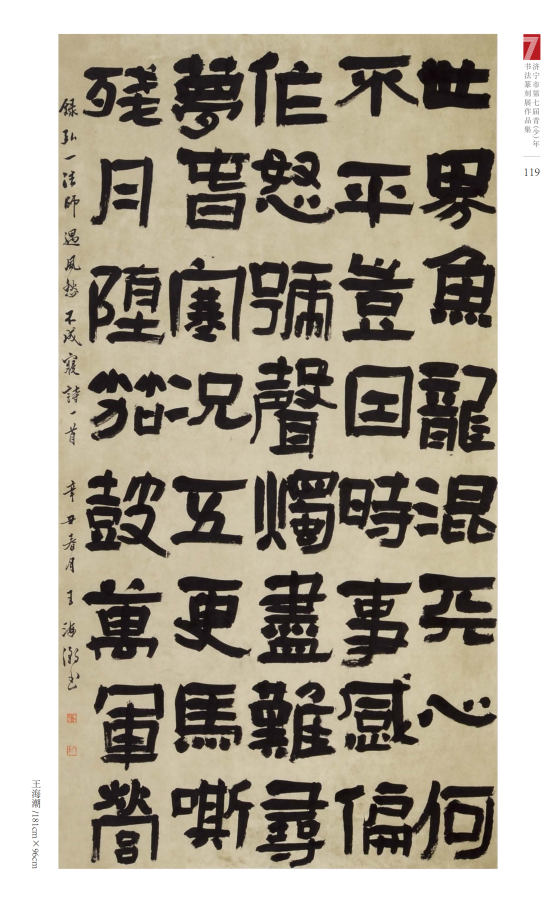 7
济宁市第七届青(少)年
书法篆刻展作品集
119
世界魚龍混天心何
不平豈因時事感偏
作怒號聲燭盡難尋
夢春寒況五更馬嘶
殘月墮笳鼓萬軍營
錄弘一法師遇風愁不成寐詩一首 辛丑春月 王海潮書
王海潮 /181cm×96cm